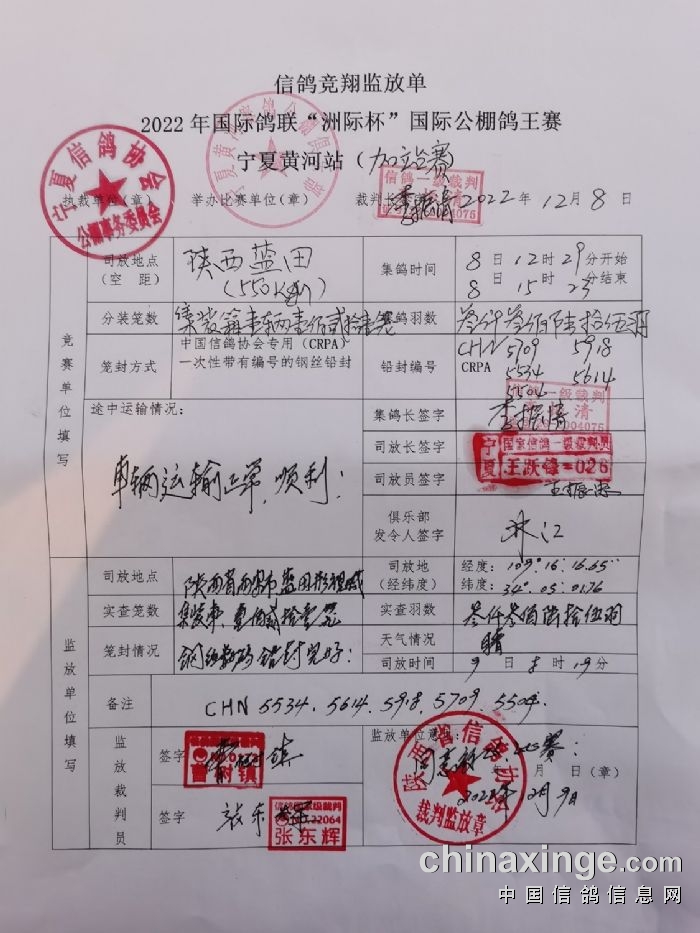 信鸽竞翔监放单
2022年国际鸽联“洲际杯”国际公棚鸽王赛
宁夏黄河站（加站赛）
执裁单位（章） 举办比赛单位（章） 裁判长 李振清 2022年12月8日
宁夏信鸽协会
公棚事务委员会
信鸽一级裁判
竞赛单位填写
司放地点（空 距） 陕西蓝田（550Km） 集鸽时间 8日12时29分开始
8日15时23分结束
分装笼数 集装箱壹辆壹佰贰拾壹笼 集鸽羽数 叁仟叁佰陆拾伍羽
笼封方式 中国信鸽协会专用（CRPA）一次性带有编号的钢丝铅封 铅封编号 CHN 5709 5918
CRPA 5534 5614
5504
途中运输情况： 集鸽长签字 李振清
车辆运输正常，顺利； 司放长签字
国家信鸽一级裁判员
宁夏 王跃锋 026
司放员签字
俱乐部发令人签字
监放单位填写
司放地点 陕西省西安市蓝田 司放地（经纬度） 经度：109°.16'.16.65"
纬度：34°.05.0176
实查笼数 集装车，壹佰贰拾壹笼 实查羽数 叁仟叁佰陆拾伍羽
笼封情况 铅封完好； 天气情况 晴
司放时间 9日8时19分
备注 CHN 5534．5614．5918．5709．5504．
监放裁判员 签字 曹树镇 监放单位意见：
同意 比赛；
月 日（章）
2022年12月9日
签字 张东辉
22064
张东辉
陕西省信鸽协会
裁判监放章
chinaxinge.com
中国信鸽信息网